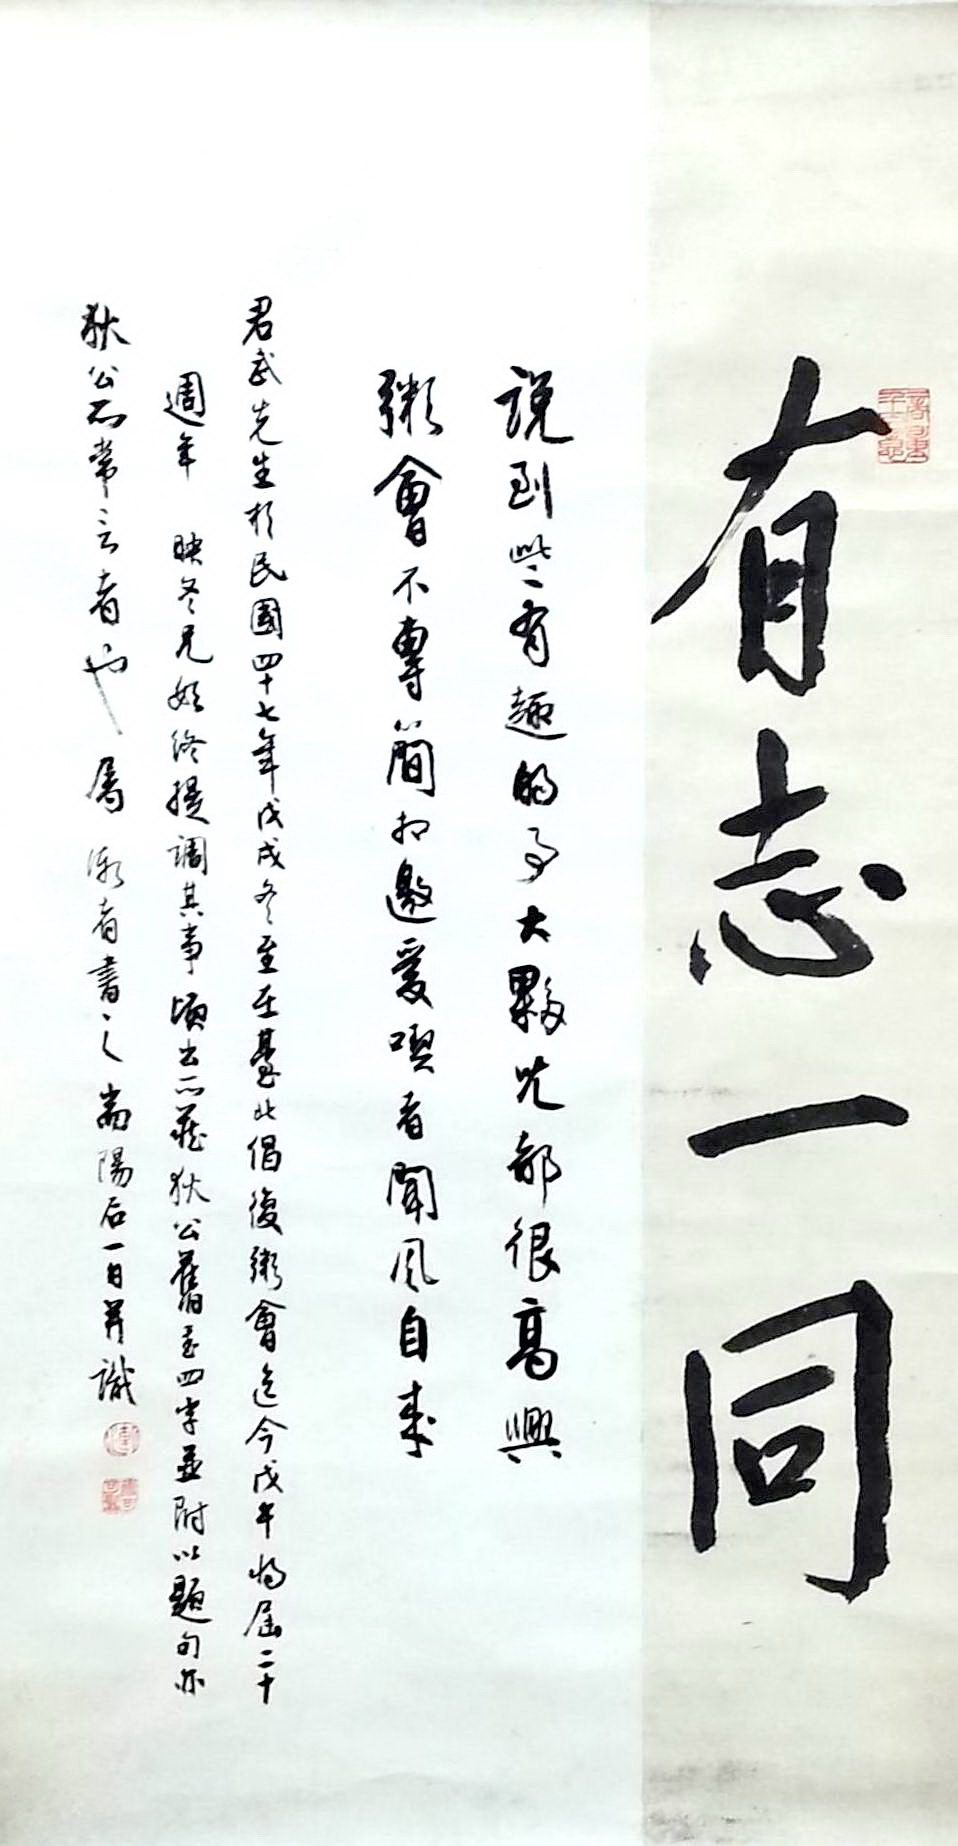 有志一同
說到些有趣的事大夥兒都很高興
粥會不專簡相邀愛喫者聞風自來
君武先生於民國四十七年戊戌冬至在臺北倡復粥會迄今戊午將屆二十
週年 映冬兄始終提調其事頃出所藏狄公舊書四字並附以題句亦
狄公所常言者也 屬 者書之 端陽后一日 識